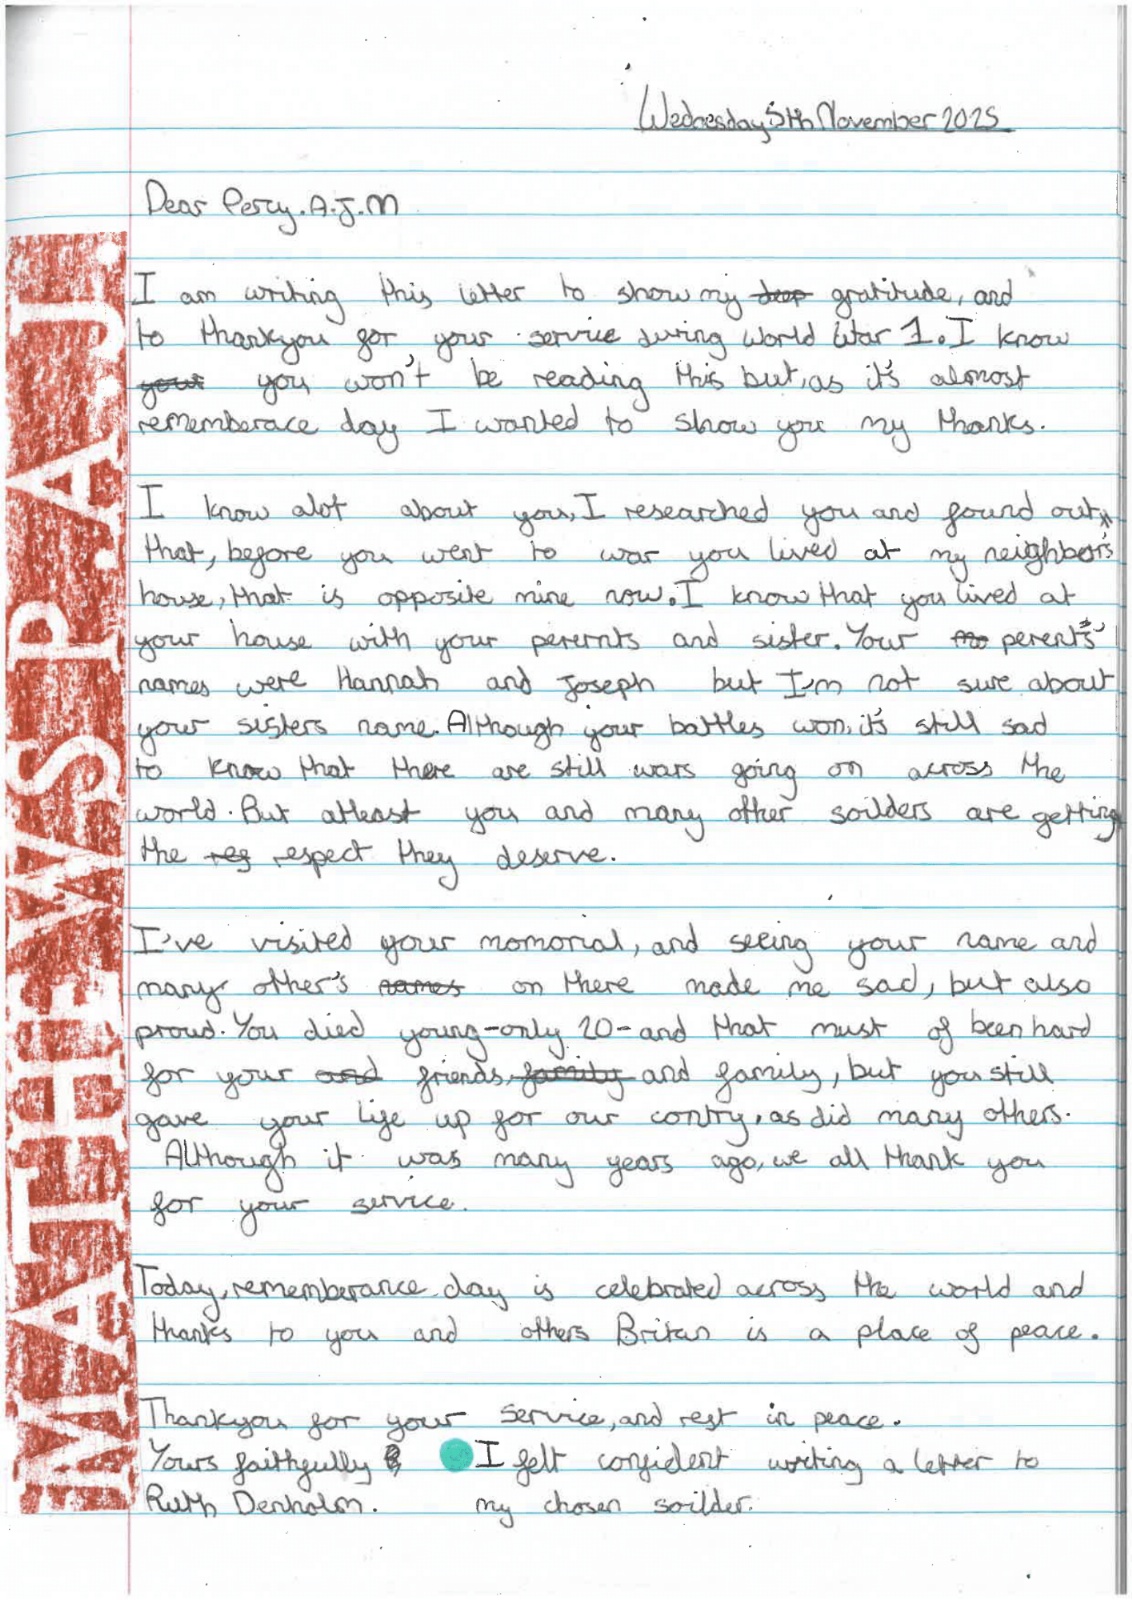 Wednesday 5th November 2025
Dear Percy.A.J.M
I am writing this letter to show my deep gratitude, and
to thankyou for your service during World War 1. I know
your you won't be reading this but, as it's almost
rememberace day I wanted to show you my thanks.
I know alot about you, I researched you and found out
that, before you went to war you lived at my neighbors
house, that is opposite mine now. I know that you lived at
your house with your perernts and sister. Your perents'
names were Hannah and Joseph but I'm not sure about
your sisters name. Although your battles won, it's still sad
to know that there are still wars going on across the
world. But atleast you and many other soilders are getting
the res respect they deserve.
I've visited your momorial, and seeing your name and
many other's names on there made me sad, but also
proud. You died young-only 20-and that must of been hard
for your and friends, family and family, but you still
gave your life up for our contry, as did many others.
Although it was many years ago, we all thank you
for your service.
Today, rememberance day is celebrated across the world and
thanks to you and others Britan is a place of peace.
Thankyou for your service, and rest in peace.
Yours faithfully I felt confident writing a letter to
Ruth Denholm. my chosen soilder.
MATHEWS P. A. J.